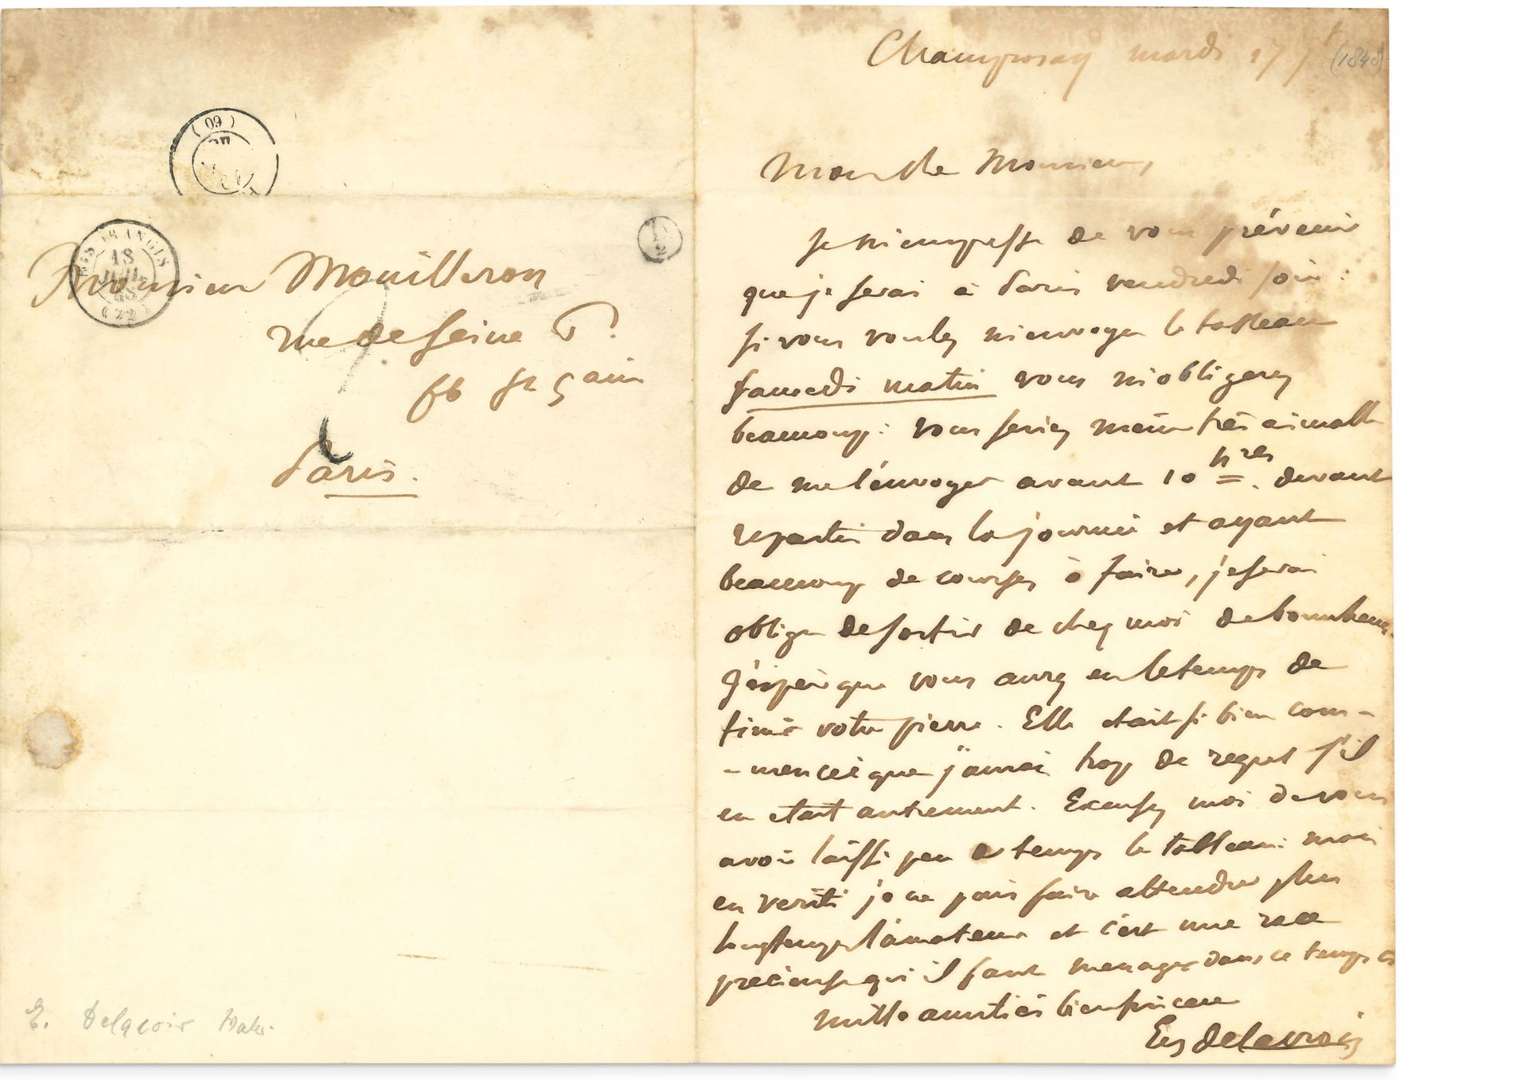 (60)
RIS-FRANGIS
18
JUIL
48
(22)
Monsieur Mouilleron
rue de Seine
fb St Gain
Paris.
E. Delacroix
Champrosay mardi 17 (1848)
Mon che Monsieur,
Je m'empresse de vous prévenir
que je serai à Paris vendredi soir :
si vous voulez m'envoyer le tableau
samedi matin vous m'obligerez
beaucoup : vous seriez même très aimable
de me l'envoyer avant 10 hres. devant
repartir dans la journée et ayant
beaucoup de courses à faire, je serai
obligé de sortir de chez moi de bonne heure.
J'espère que vous aurez eu le temps de
finir votre pierre. Elle etait si bien com-
-mencée que j'aurai trop de regret s'il
en etait autrement. Excusez moi de vous
avoir laissé peu de temps le tableau : mais
en verité je ne puis faire attendre plus
longtemps l'amateur et c'est une race
precieuse qu'il faut menager dans ce temps ci
mille amitiés bien sinceres
Eug Delacroix